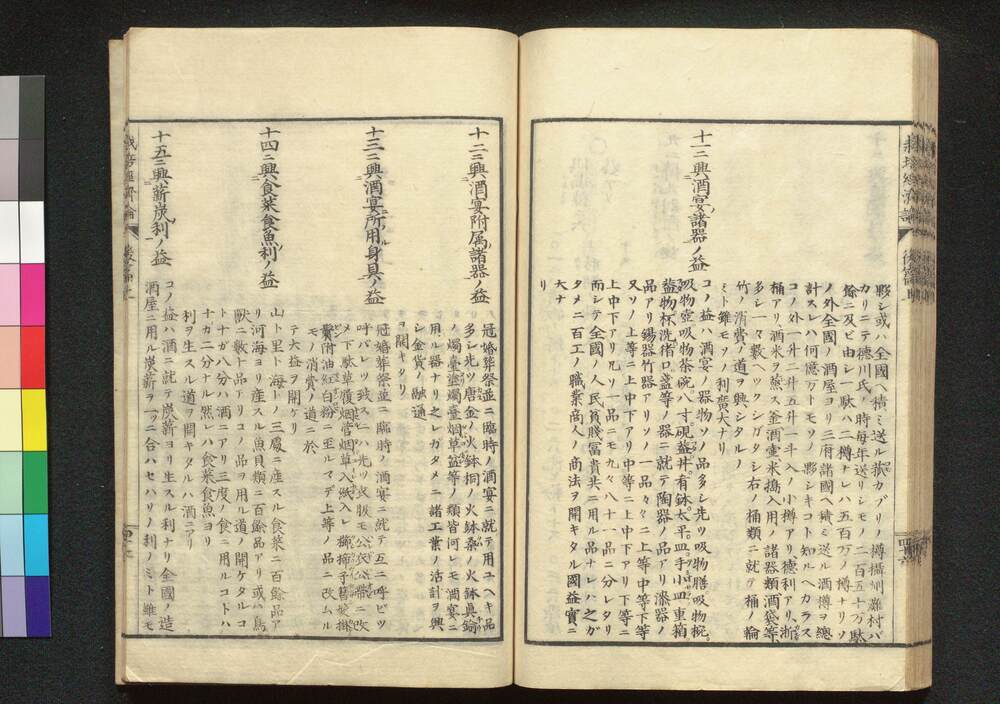 夥シ或ハ全國ヘ積ミ送ル菰カブリノ樽攝州灘村バ
カリニテ德川氏ノ時毎年送リシモノ二百五十万駄
餘ニ及ビ由シ一駄ハ二樽ナレハ五百万ノ樽ナリソ
ノ外全國ノ酒屋ヨリ三府諸國ヘ積ミ送ル酒樽ヲ總
計スレハ何億万トモソノ夥シキコト知ルヘカラス
コノ外一升二升五升一斗入ノ小樽アリ德利アリ
桶アリ酒米ヲ蒸ス釜酒壷米搗入用ノ諸器類酒袋等
多シ一々數ヘツクシガタシ右ノ桶類ニ就テ桶ノ輪
竹ノ消費ノ道ヲ興シタルノ
ミト雖モソノ利廣大ナリ
十一ニ興酒宴諸器ノ益
コノ益ハ酒宴ノ器物ソノ品多シ先ツ吸物膳吸物椀
吸物壺吸物茶碗八寸硯蓋丼有鉢太平皿手小皿重箱
益物杯洗猪口盞等ノ器ニ就テ陶器ノ品アリ漆器ノ
品アリ錫器竹器アリソノ一品々々ニ上等中等下等
又ソノ上等ニ上中下アリ中等ニ上中下アリ下等ニ
上中下アリ凡ソ一品ニモ九々八十一品ニ分レタリ
而シテ全國ノ人民貧賤冨貴共ニ用ル品ナレハ之ガ
タメニ百工ノ職業商人ノ商法ヲ開キタル國益實ニ
大ナ
リ
十二ニ興酒宴附属諸器ノ益
冠婚葬祭並ニ臨時ノ酒宴ニ就テ用ユヘキ品
多シ先ツ唐金ノ火鉢銅ノ火鉢桑ノ火鉢真鍮
ノ燭臺塗燭臺烟草盆等ノ類皆何レモ酒宴ニ
用ル器ナリ之レガタメニ諸工業ノ活計ヲ興
シ金貨ノ融通
ヲ開キタリ
十三ニ興酒宴所用身具ノ益
冠婚葬祭並ニ臨時ノ酒宴ニ就テ互ニ呼ビツ
呼バレツ致スニハ先ツ衣服モ公衣公帯ニ改
メ下駄草履烟管烟草入紙入レ櫛笄子簪
附油紅白粉ニ至ルマデ上等ノ品ニ改ムル
モノ消費ノ道ニ於
テ大益ヲ開ケリ
十四ニ興食菜食魚利ノ益
山ト里ト海トノ三處ニ産スル食菜ニ百餘品ア
リ河海ヨリ産スル魚貝類ニ百餘品アリ或ハ鳥
獸ニ數十品アリコノ品ヲ用ル道ノ開ケタルコ
トナガ八分ハ酒ニアリ三度ノ食ニ用ルコトハ
十ガ二分ナル然レハ食菜食魚ヨリ
利ヲ生スル道ヲ開キタルハ酒ニアリ
十五ニ興薪炭利ノ益
コノ益ハ酒ニ就テ炭薪ヨリ生スル利ナリ全國ノ造
酒屋ニ用ル炭薪ヲ一ツニ合ハセハソノ利ノミト雖モ